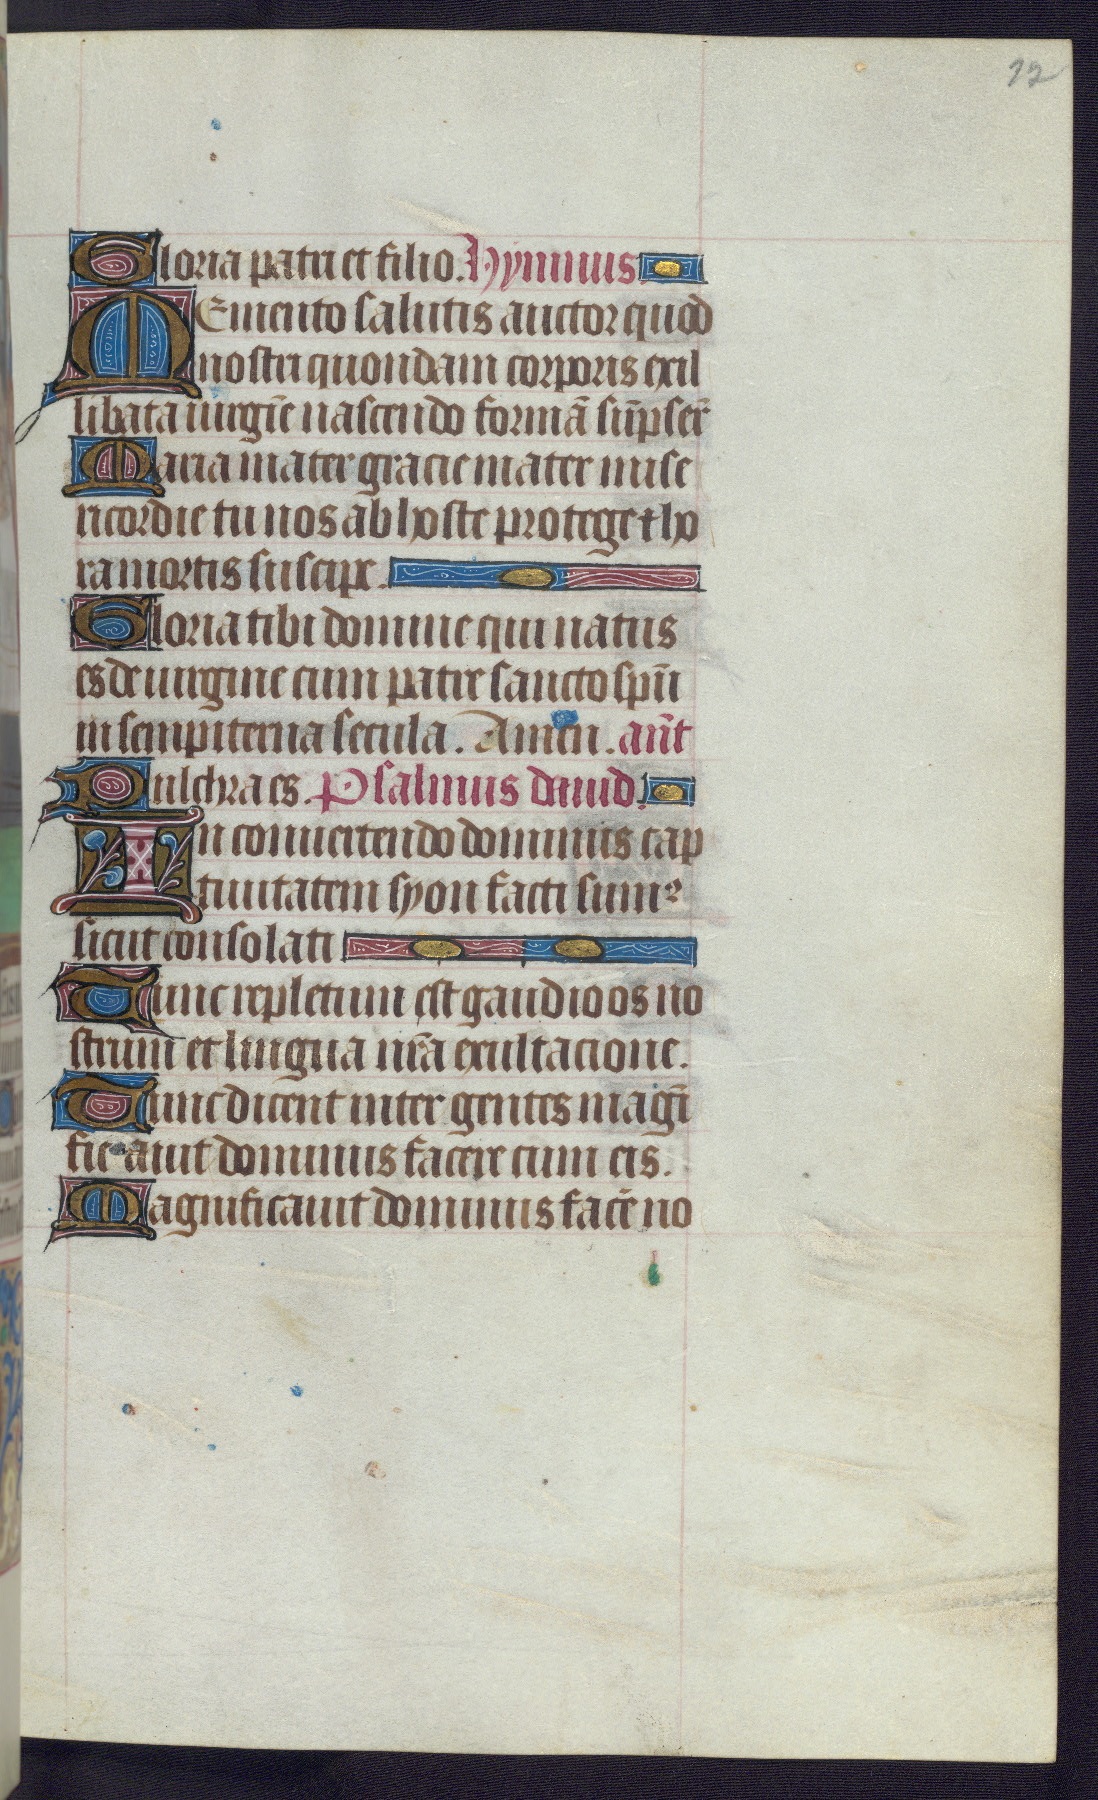 12
Gloria patri et filio. Hymnus
Memento salutis auctor quod
nostri quondam corporis exil
libata uirgīe nascendo formā sūpser̄
Maria mater gracie mater mise
ricordie tu nos ab hoste protege ⁊ ho
ra mortis suscipe.
Gloria tibi domine qui natus
es de uirgine cum patre sancto spū
in sempiterna secula. Amen. ant̄
Pulchra es. Psalmus dauid.
In conuertendo dominus cap
tiuitatem syon facti sumꝰ
sicut consolati
Tunc repletum est gaudio os no
strum et lingua nr̄a exultacione.
Tunc dicent inter gentes magī
ficauit dominus facere cum eis.
Magnificauit dominus facē no